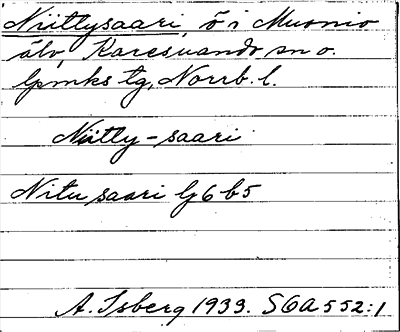 Niittysaari, ö i Muonio
älv, Karesuando sn o.
lpmks tg, Norrb. l.
Niitty-saari
Nitu saari Lj 6 b5
A. Isberg 1933. SOA 552:1